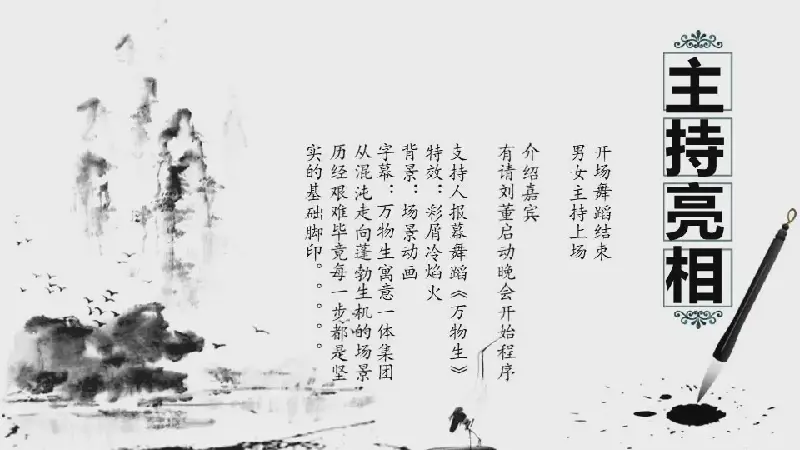 主持亮相
开场舞蹈结束
男女主持上场
介绍嘉宾
有请刘董启动晚会开始程序
支持人报幕舞蹈《万物生》
特效：彩屑冷焰火
背景：场景动画
字幕：万物生寓意一体集团
从混沌走向蓬勃生机的场景
历经艰难毕竟每一步都是坚
实的基础脚印。。。。。